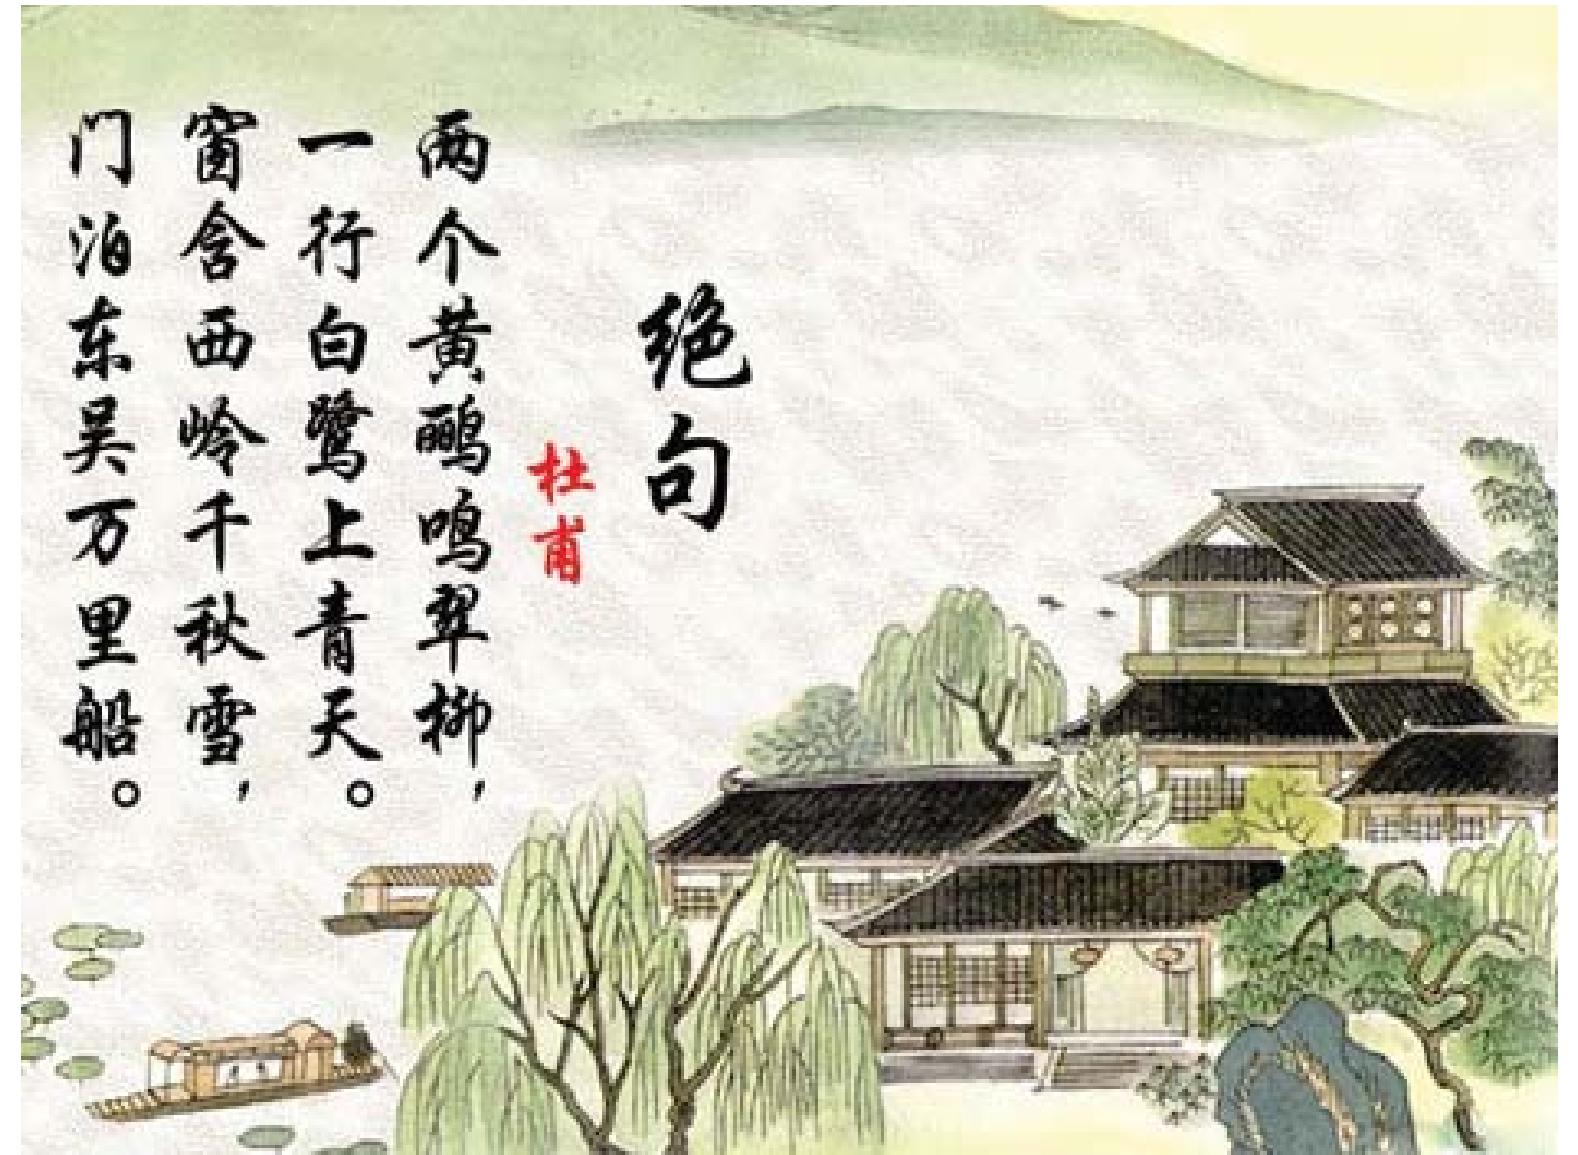 绝句
杜甫
两个黄鹂鸣翠柳，
一行白鹭上青天。
窗含西岭千秋雪，
门泊东吴万里船。